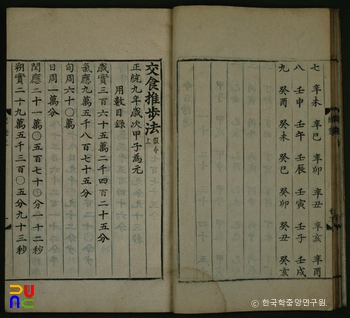 七 辛未 辛巳 辛卯 辛丑 辛亥 辛酉
八 壬申 壬午 壬辰 壬寅 壬子 壬戌
九 癸酉 癸未 癸巳 癸卯 癸丑 癸亥
交食推步法 假令上
用數目錄
正統九年歲次甲子為元
歲實三百六十五萬二千四百二十五分
氣應九萬五千八百七十五分
旬周六十〇萬
日周一萬分
閏應二十一萬〇五百七十〇分一十二秒
朔實二十九萬五千三百〇五分九十三秒
ⓒ 한국학중앙연구원